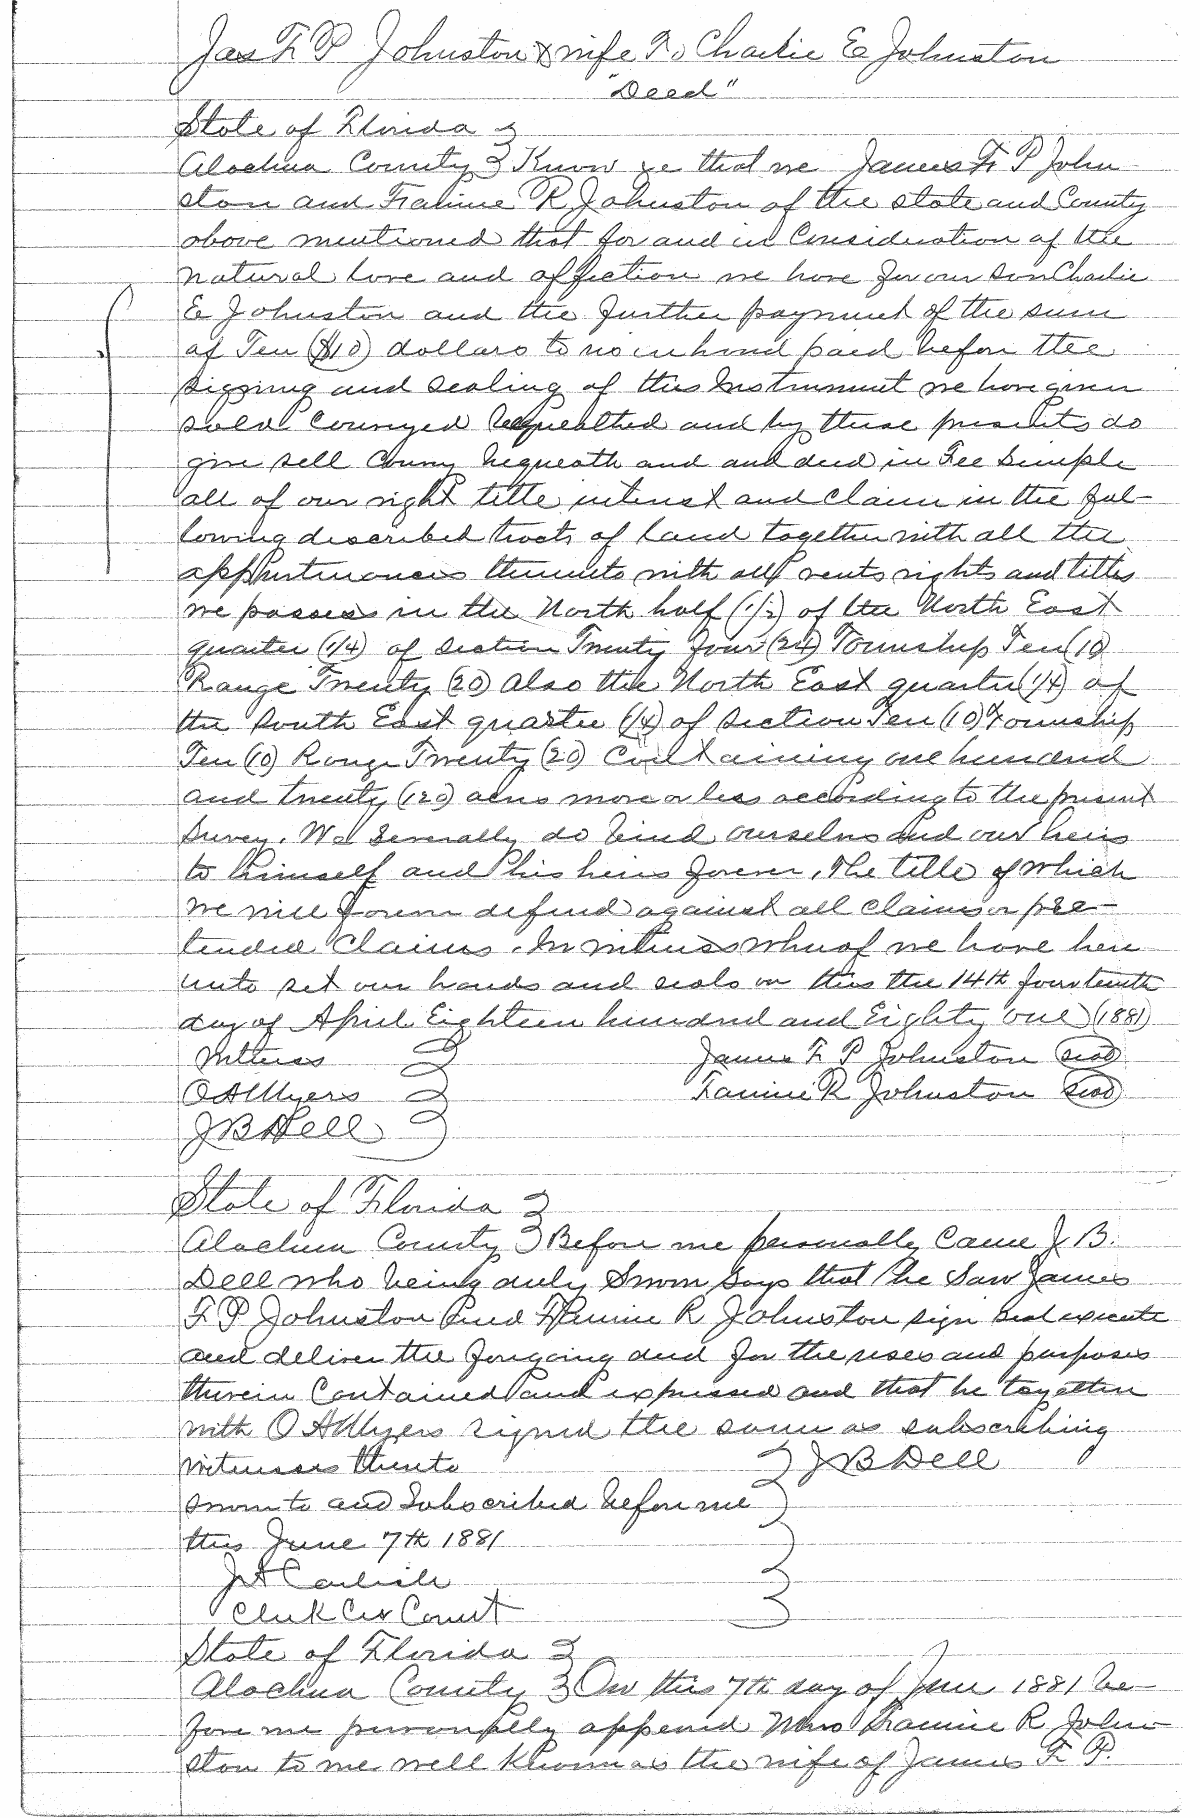 Jas F P Johnston & wife To Charlie E Johnston
"Deed"
State of Florida
Alachua County Know ye that we James F P John
ston and Fannie R Johnston of the state and County
above mentioned that for and in Consideration of the
natural love and affection we have for our son Charlie
E Johnston and the further payment of the sum
of Ten ($10) dollars to us in hand paid before the
signing and sealing of this Instrument we have given
sold Conveyed bequeathed and by these presents do
give sell Convey bequeath and and deed in Fee Simple
all of our right title interest and claim in the fol-
lowing described tracts of land together with all the
appurtenances thereunto with all rents rights and titles
we possess in the North half (1/2) of the North East
quarter (1/4) of section Twenty four (24) Township Ten (10
Range Twenty (20) Also the North East quarter (1/4) of
the South East quarter (1/4) of Section Ten (10) Township
Ten (10) Range Twenty (20) Containing one hundred
and twenty (120) acres more or less according to the present
survey. We Severally do bind ourselves and our heirs
to himself and his heirs forever, The title of which
we will forever defend against all claims or pre-
tended Claims. In witness whereof we have here
unto set our hands and seals on this the 14th fourteenth
day of April Eighteen hundred and Eighty one (1881)
Witness James F P Johnston seal
O A Myers Fannie R Johnston seal
J B Dell
State of Florida
Alachua County Before me personally Came J B.
Dell who being duly Sworn Says that he Saw James
F P Johnston and Fannie R Johnston sign seal execute
and deliver the foregoing deed for the uses and purposes
therein Contained and expressed and that he together
with O A Myers signed the same as subscribing
witnesses thereto J B Dell
sworn to and Subscribed before me
this June 7th 1881
J A Carlisle
Clerk Cir Court
State of Florida
Alachua County On this 7th day of June 1881 be-
fore me personally appeared Mrs Fannie R John
ston to me well known as the wife of James F. P.